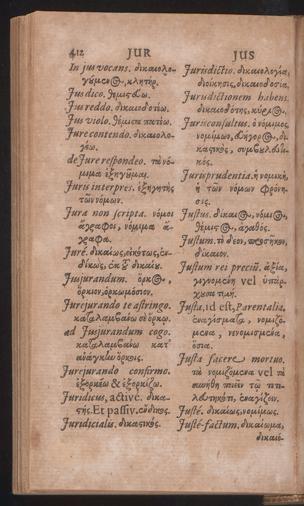 412 JUR
In jus vocans. δικαιολο-
γούμενος, κλητήρ.
Jus dico. θεμιστεύω.
Jus reddo. δικαιοδοτέω.
Jus violo.
Jure contendo. δικαιολο-
γέω.
de Jure respondeo. τὰ νό-
μιμα ἐξηγοῦμαι.
Juris interpres. ἐξηγητὴς
τῶν νόμων.
Jura non scripta. νόμοι
ἄγραφοι, νόμιμα ἄ-
γραφα.
Juré. δικαίως, εἰκότως, ἐν-
δίκως, ἐκ τοῦ δικαίου.
Jusjurandum. ὅρκος,
ὅρκιον, ὁρκωμόσιον.
Jurejurando te astringo.
καταλαμβάνω σε ὅρκῳ.
ad Jusjurandum cogo.
καταλαμβάνω κατ'
ἀνάγκην ὅρκοις.
Jurejurando confirmo.
ἐξορκίω & ἐξορκίζω.
Juridicus, activé. δικα-
στής. Et passiv. ἔνδικος.
Juridicialis. δικανικός.
JUS
Jurisdictio. δικαιολογία,
διοίκησις, δικαιοδοσία.
Jurisdictionem habens.
δικαιοδότης, κύριος.
Jurisconsultus. ὁ νόμιμος,
νομίμων, δι-
κανικός, συμβουλευτι-
κός.
Jurisprudentia. ἡ νομική,
ἡ τῶν νόμων φρόνη-
σις.
Justus. δίκαιος, νόμιμος,
ἀγαθός.
Justum. τὸ δέον, προσῆκον,
δίκαιον.
Justum rei preciū. ἀξία,
γιγνομένη vel ὑπάρ-
χουσα τιμή.
Justa, id est, Parentalia.
ἐναγίσματα, νομιζό-
μενα, νενομισμένα,
ὅσια.
Justa facere mortuo.
τὰ νομιζόμενα vel τὰ
ποιεῖν τῷ τετε-
λευτηκότι, ἐναγίζειν.
Justé. δικαίως, νομίμως.
Justé-factum. δικαίωμα,
δικαιο-